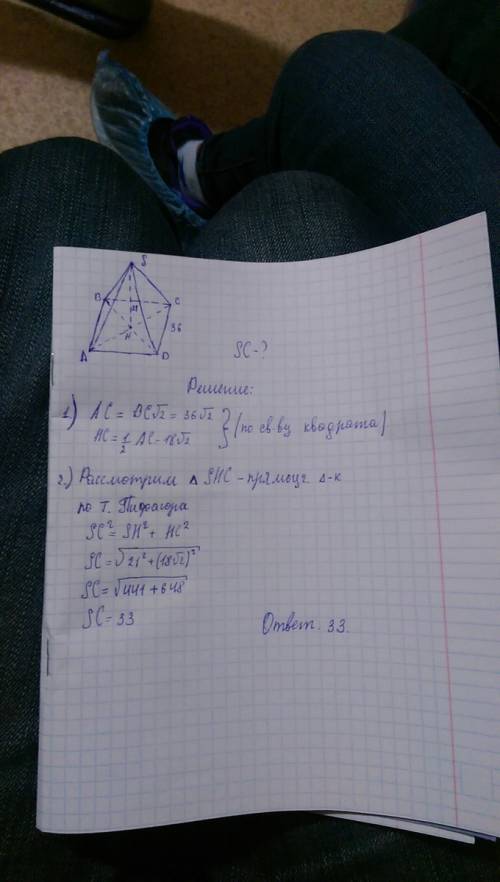 S
B
C
21
36
H
A
D
SC-?
Решение:
1) AC = DC√2 = 36√2
HC = 1/2 AC = 18√2 } (по св-ву квадрата)
2.) Рассмотрим Δ SHC - прямоуг. Δ-к
по т. Пифагора
SC² = SH² + HC²
SC = √21² + (18√2)²
SC = √441 + 648
SC = 33
Ответ. 33.